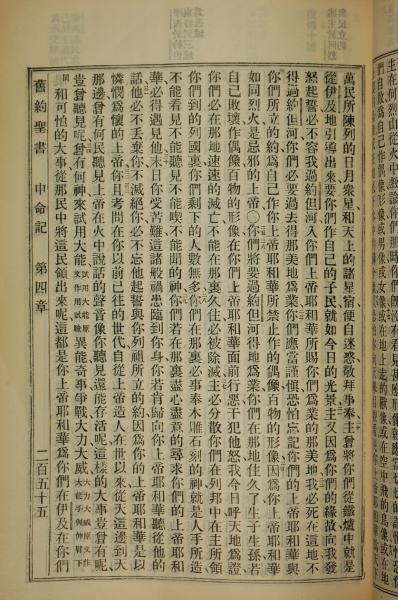 萬民所陳列的日月衆星和天上的諸星宿便自迷惑敬拜事奉主曾將你們從鐵爐中就是
從伊及地引導出來要你們作自己的子民就如今日的光景主又因爲你們的緣故向我發
怒起誓必不容我過約但河入你們上帝耶和華所賜你們爲業的美地我必死在這地不
得過約但河你們必要過去得那美地爲業你們應當謹愼恐怕忘記你們的上帝耶和華與
你們所立的約爲自己作你上帝耶和華所禁止作的偶像百物的形像因爲你上帝耶和華
如同烈火是忌邪的上帝〇你們將要過約但河得地爲業你們在那地住久了生子生孫若
自己敗壞作偶像百物的形像在你上帝耶和華面前行惡干犯他惹怒我今日呼天地爲證
你們必在那地速速的滅亡不能在那裏久住必被除滅主必分散你們在列邦中在主所領
你們到的列國裏你們剩下的人數無多你們在那裏必事奉木雕石刻的神就是人手所造
不能看見不能聽見不能喫不能聞的神你們若在那裏盡心盡意的尋求你們的上帝耶和
華必得遇見他末日你受苦難這諸般禍患臨到你身你若肯歸向你上帝耶和華聽從他的
話他必不丟棄你不滅絕你必不忘他起誓與你列祖所立的約因爲你的上帝耶和華是以
憐憫爲懷的上帝你且考問在你以前已往的世代自從上帝造人在世以來從天這邊到天
那邊曾有何民聽見上帝在火中說話的聲音像你聽見還能存活呢這樣的大事曾有呢
豈曾聽見呢曾有何神來試用大能試用大能原文作用試驗異能奇事爭戰大力大威大力大威原文作大能手與伸臂下
同和可怕的大事從那民中將這民領出來呢這都是你上帝耶和華爲你們在伊及在你們
舊約聖書 申命記 第四章 二百五十五